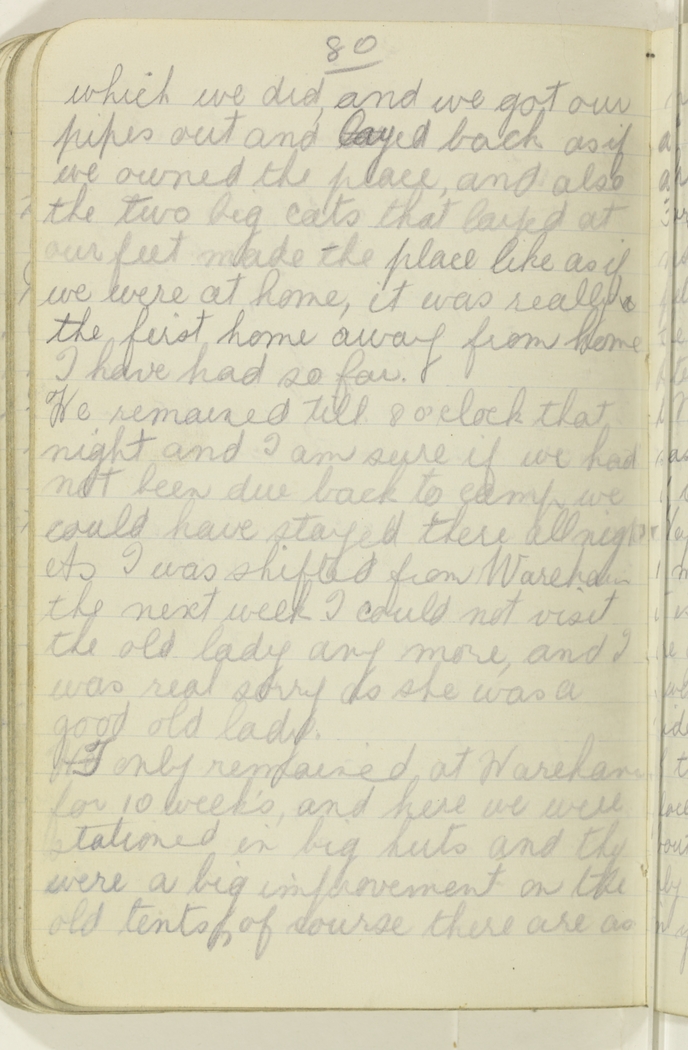 80
which we did, and we got our
pipes out and layed back as if
we owned the place, and also
the two big cats that layed at
our feet made the place like as if
we were at home, it was really
the first home away from home
I have had so far.
We remained till 8 o'clock that
night and I am sure if we had
not been due back to camp we
could have stayed there all night
As I was shifted from Wareham
the next week I could not visit
the old lady any more, and I
was real sorry as she was a
good old lady.
I only remained at Wareham
for 10 weeks, and here we were
stationed in big huts and they
were a big improvement on the
old tents, of course there are as